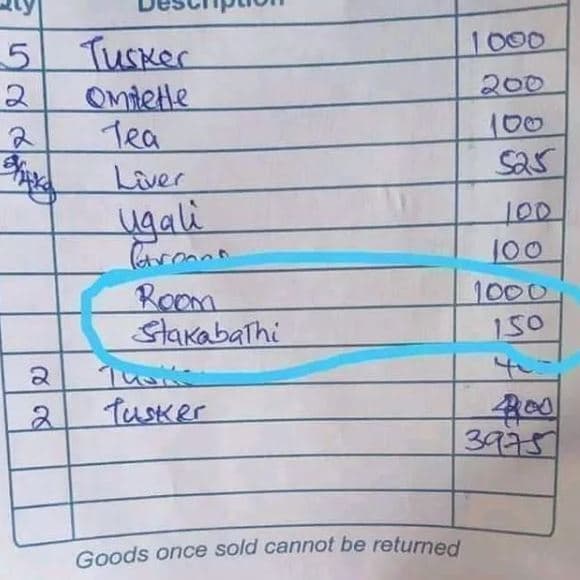 Qty Description
5 Tusker 1000
2 Omlette 200
2 Tea 100
Liver 525
Ugali 100
100
Room 1000
Stakabathi 150
2 Tusker
2 Tusker 400
3975
Goods once sold cannot be returned